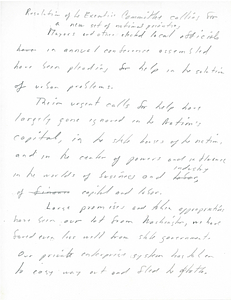 Resolution of the Executive Committee calling for
a new set of national priorities
Mayors and other elected local officials
have in annual conference assembled
have been pleading for help in the solution
of urban problems.
Their urgent calls for help have
largely gone ignored in the Nation's
capital, in the state houses of the nation,
and in the centers of power and influence
industry
in the worlds of business and
of capital and labor.
Large promises and token appropriations
have been our lot from Washington, we have
fared even less well from state governments.
Our private enterprise system has taken
the easy way out and fled to